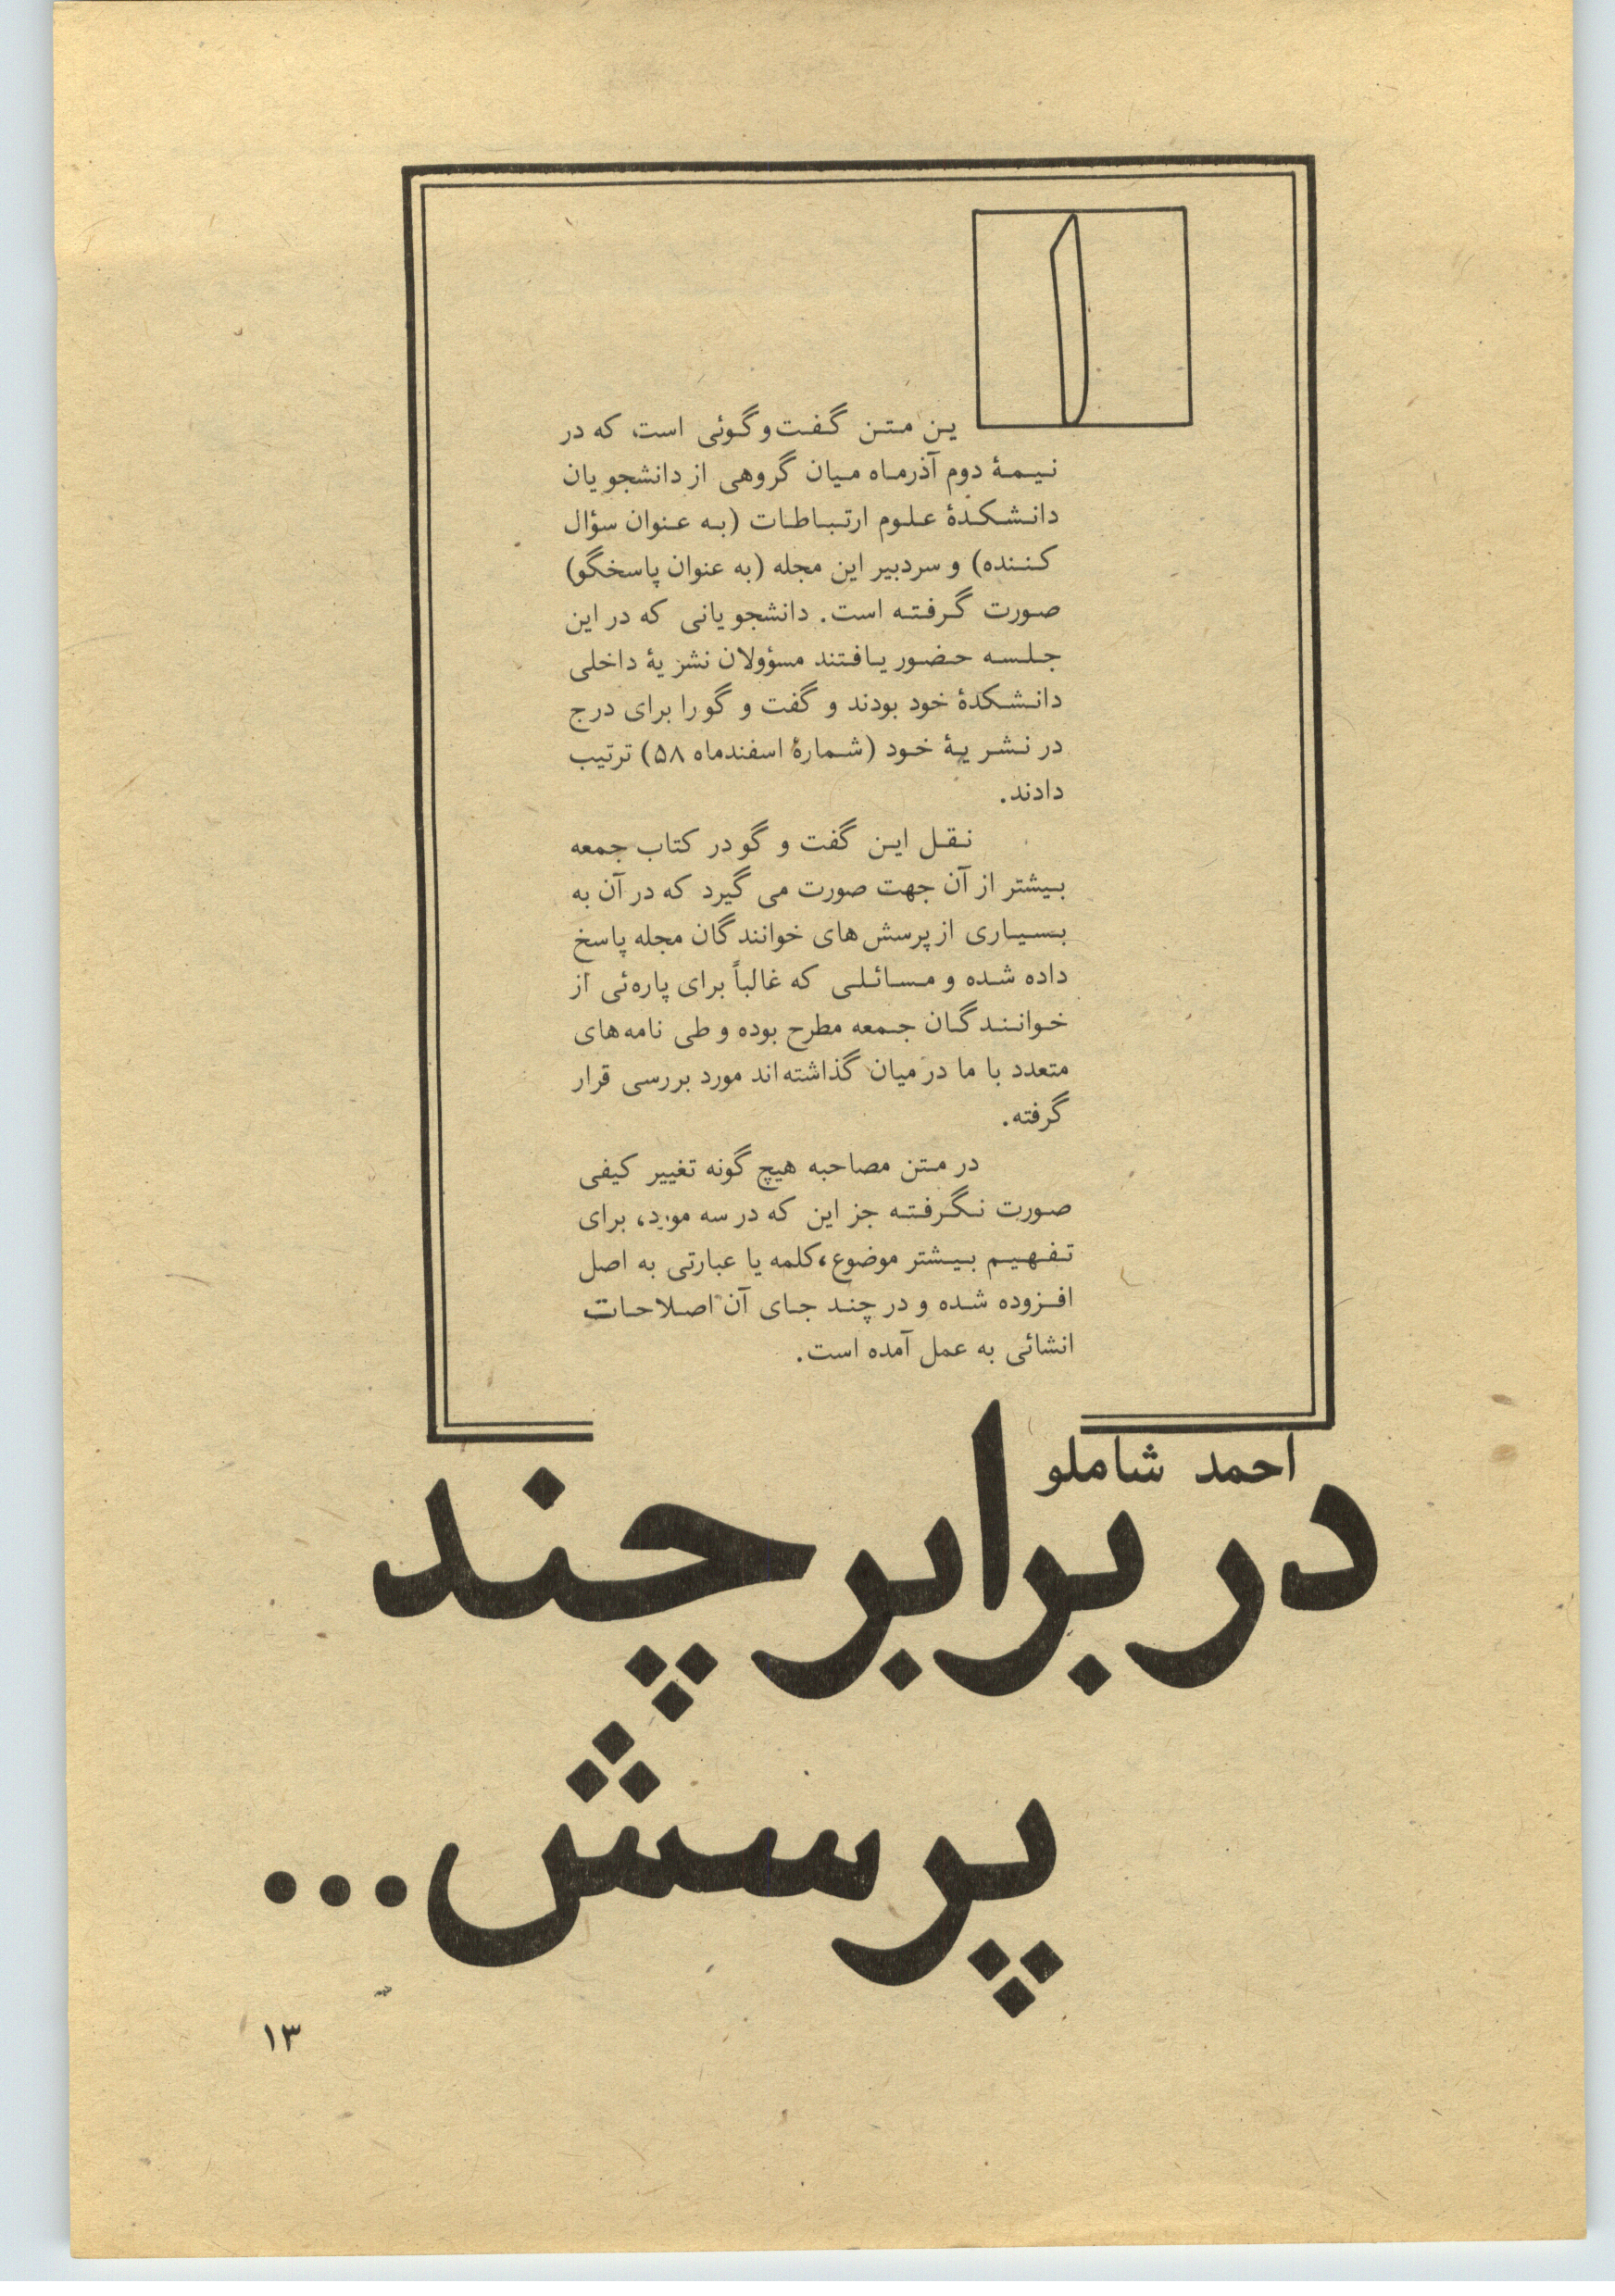 این متن گفت‌وگوئی است که در
نیمهٔ دوم آذرماه میان گروهی از دانشجویان
دانشکدهٔ علوم ارتباطات (به عنوان سؤال
کننده) و سردبیر این مجله (به عنوان پاسخگو)
صورت گرفته است. دانشجویانی که در این
جلسه حضور یافتند مسؤولان نشریهٔ داخلی
دانشکدهٔ خود بودند و گفت و گو را برای درج
در نشریهٔ خود (شمارهٔ اسفندماه ۵۸) ترتیب
دادند.
نقل این گفت و گو در کتاب جمعه
بیشتر از آن جهت صورت می گیرد که در آن به
بسیاری از پرسش‌های خوانندگان مجله پاسخ
داده شده و مسائلی که غالباً برای پاره‌ئی از
خوانندگان جمعه مطرح بوده و طی نامه‌های
متعدد با ما در میان گذاشته‌اند مورد بررسی قرار
گرفته.
در متن مصاحبه هیچ گونه تغییر کیفی
صورت نگرفته جز این که در سه مورد، برای
تفهیم بیشتر موضوع، کلمه یا عبارتی به اصل
افزوده شده و در چند جای آن اصلاحات
انشائی به عمل آمده است.
احمد شاملو
در برابر چند
پرسش...
۱۳